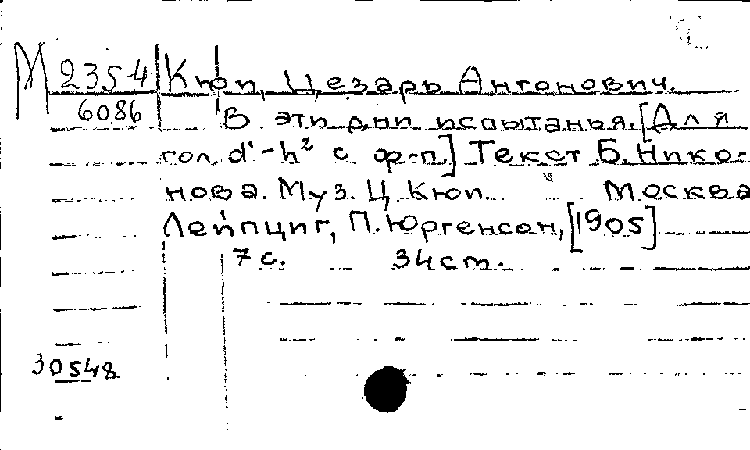 М 2354 Кюи, Цезарь Антонович.
6086 В эти дни испытанья. [Для
гол. d¹-h² с ф-п] Текст Б. Нико-
нова. Муз. Ц. Кюи. Москва
Лейпциг, П. Юргенсон, [1905]
7 с. 34 cm.
30548